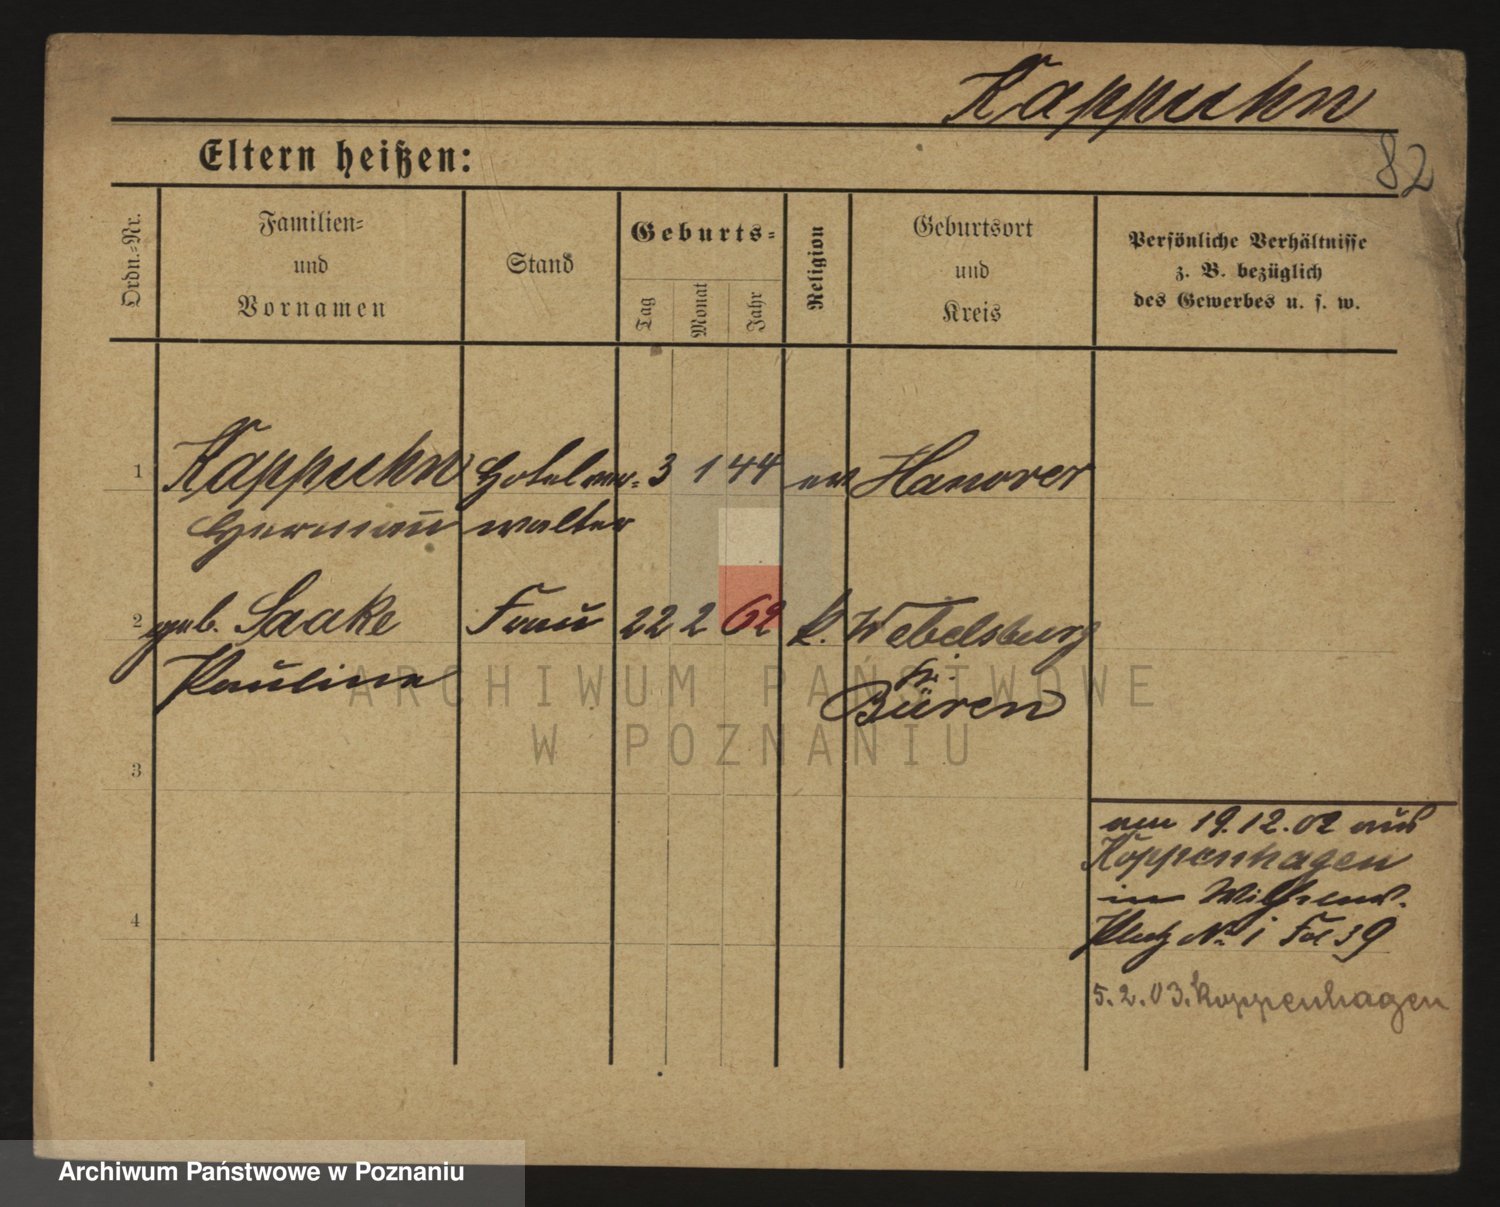 Kappuhn
82
Eltern heißen:
Ordn.-Nr.
Familien-
und
Vornamen
Stand
Geburts-
Tag
Monat
Jahr
Religion
Geburtsort
und
Kreis
Persönliche Verhältnisse
z. B. bezüglich
des Gewerbes u. s. w.
1 Kappuhn Hotelver- 3 1 44 ev Hanover
Hermann walter
2 geb. Saake Frau 22 2 62 k. Webelsburg
Pauline Kr.
Büren
3
am 19.12.02 aus
Koppenhagen
in Wilhelms.
Platz No 1
4
5.2.03. Koppenhagen
ARCHIWUM PAŃSTWOWE
W POZNANIU
Archiwum Państwowe w Poznaniu